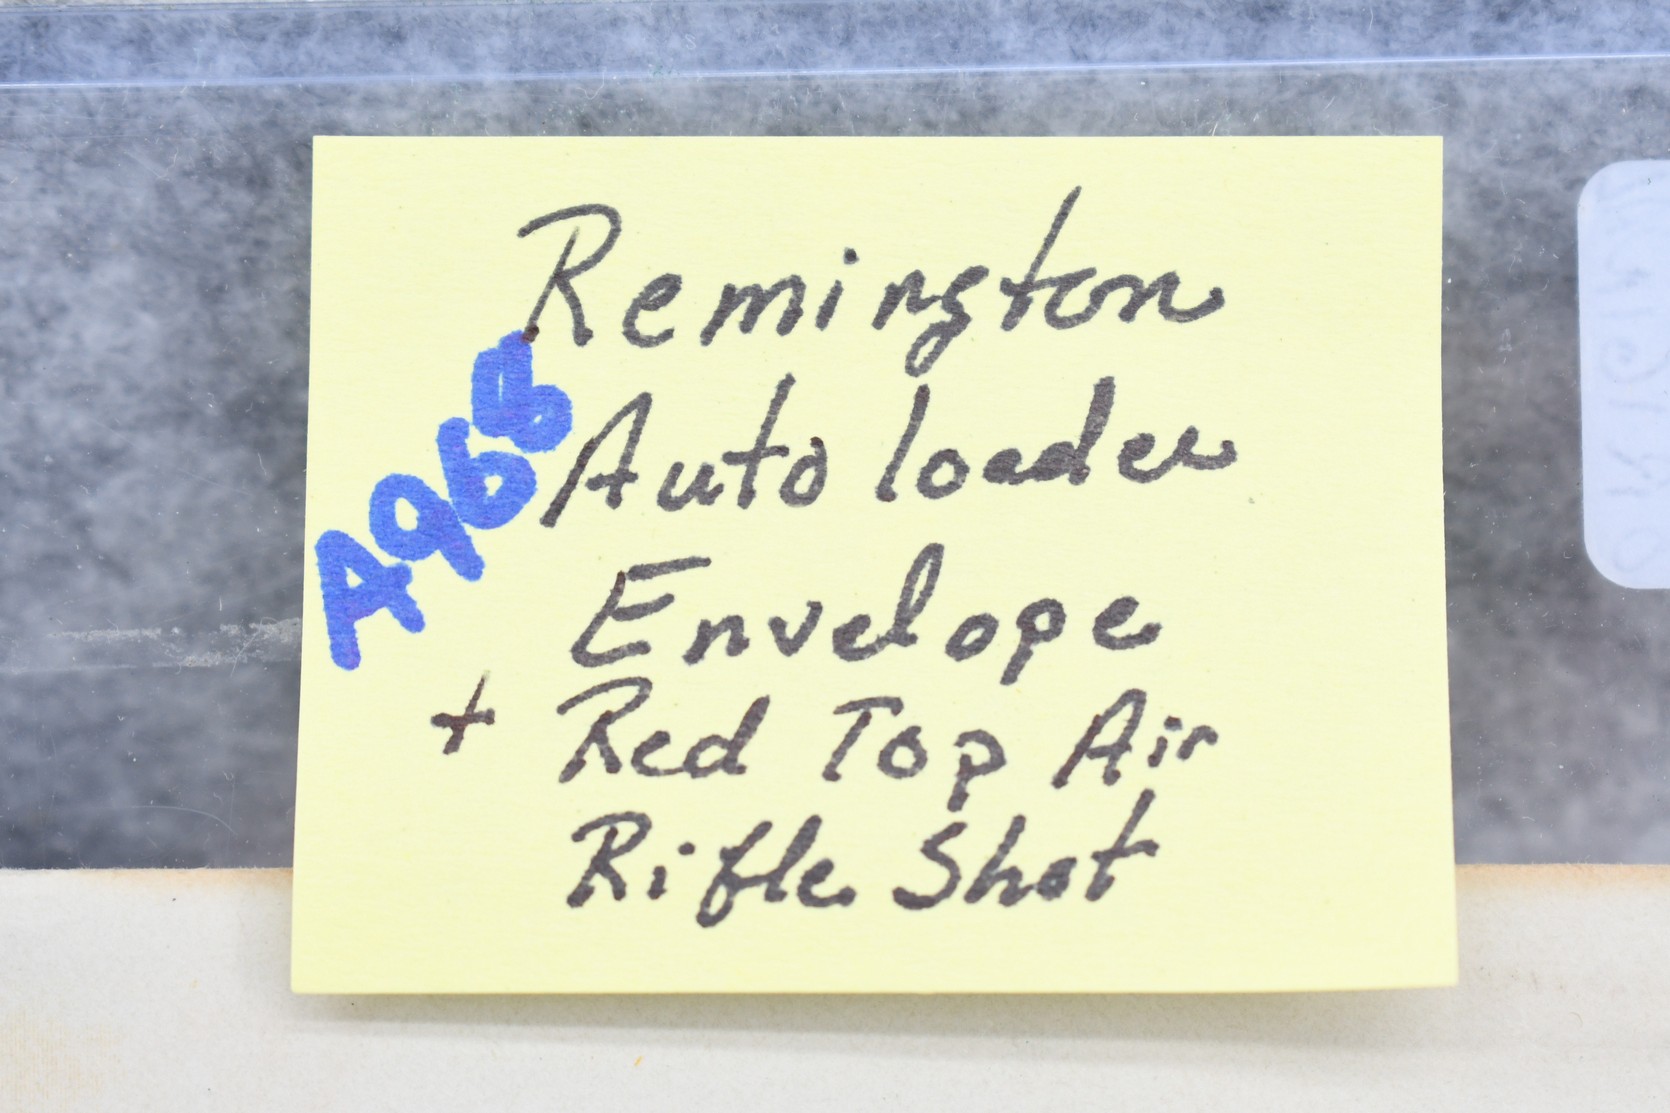 Remington
A968
Auto loader
Envelope
+ Red Top Air
Rifle Shot